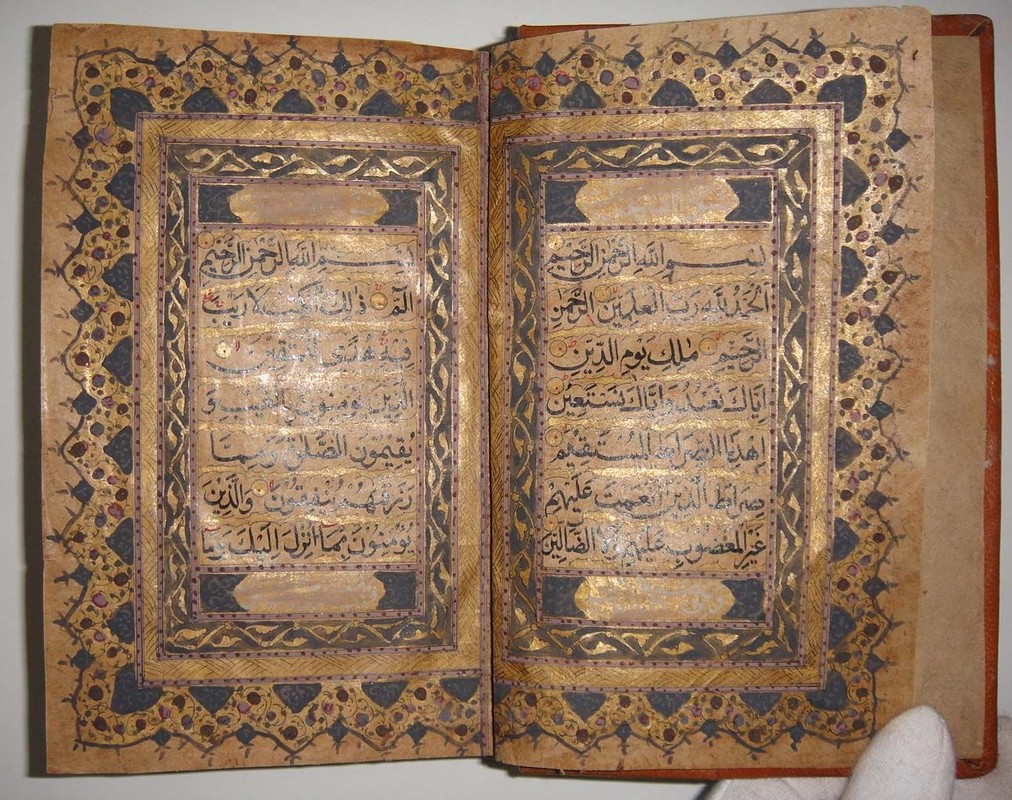 بسم الله الرحمن الرحيم
الحمد لله رب العلمين الرحمن
الرحيم ملك يوم الدين
اياك نعبد واياك نستعين
اهدنا الصراط المستقيم
صراط الذين انعمت عليهم
غير المغضوب عليهم ولا الضالين
بسم الله الرحمن الرحيم
الم ذلك الكتب لا ريب
فيه هدى للمتقين
الذين يؤمنون بالغيب و
يقيمون الصلوة ومما
رزقنهم ينفقون والذين
يؤمنون بما انزل اليك وما